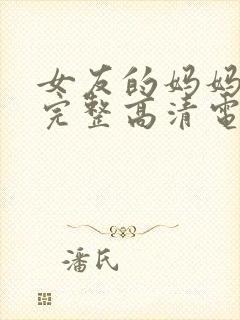 女友的妈妈
完整高清電
潘氏